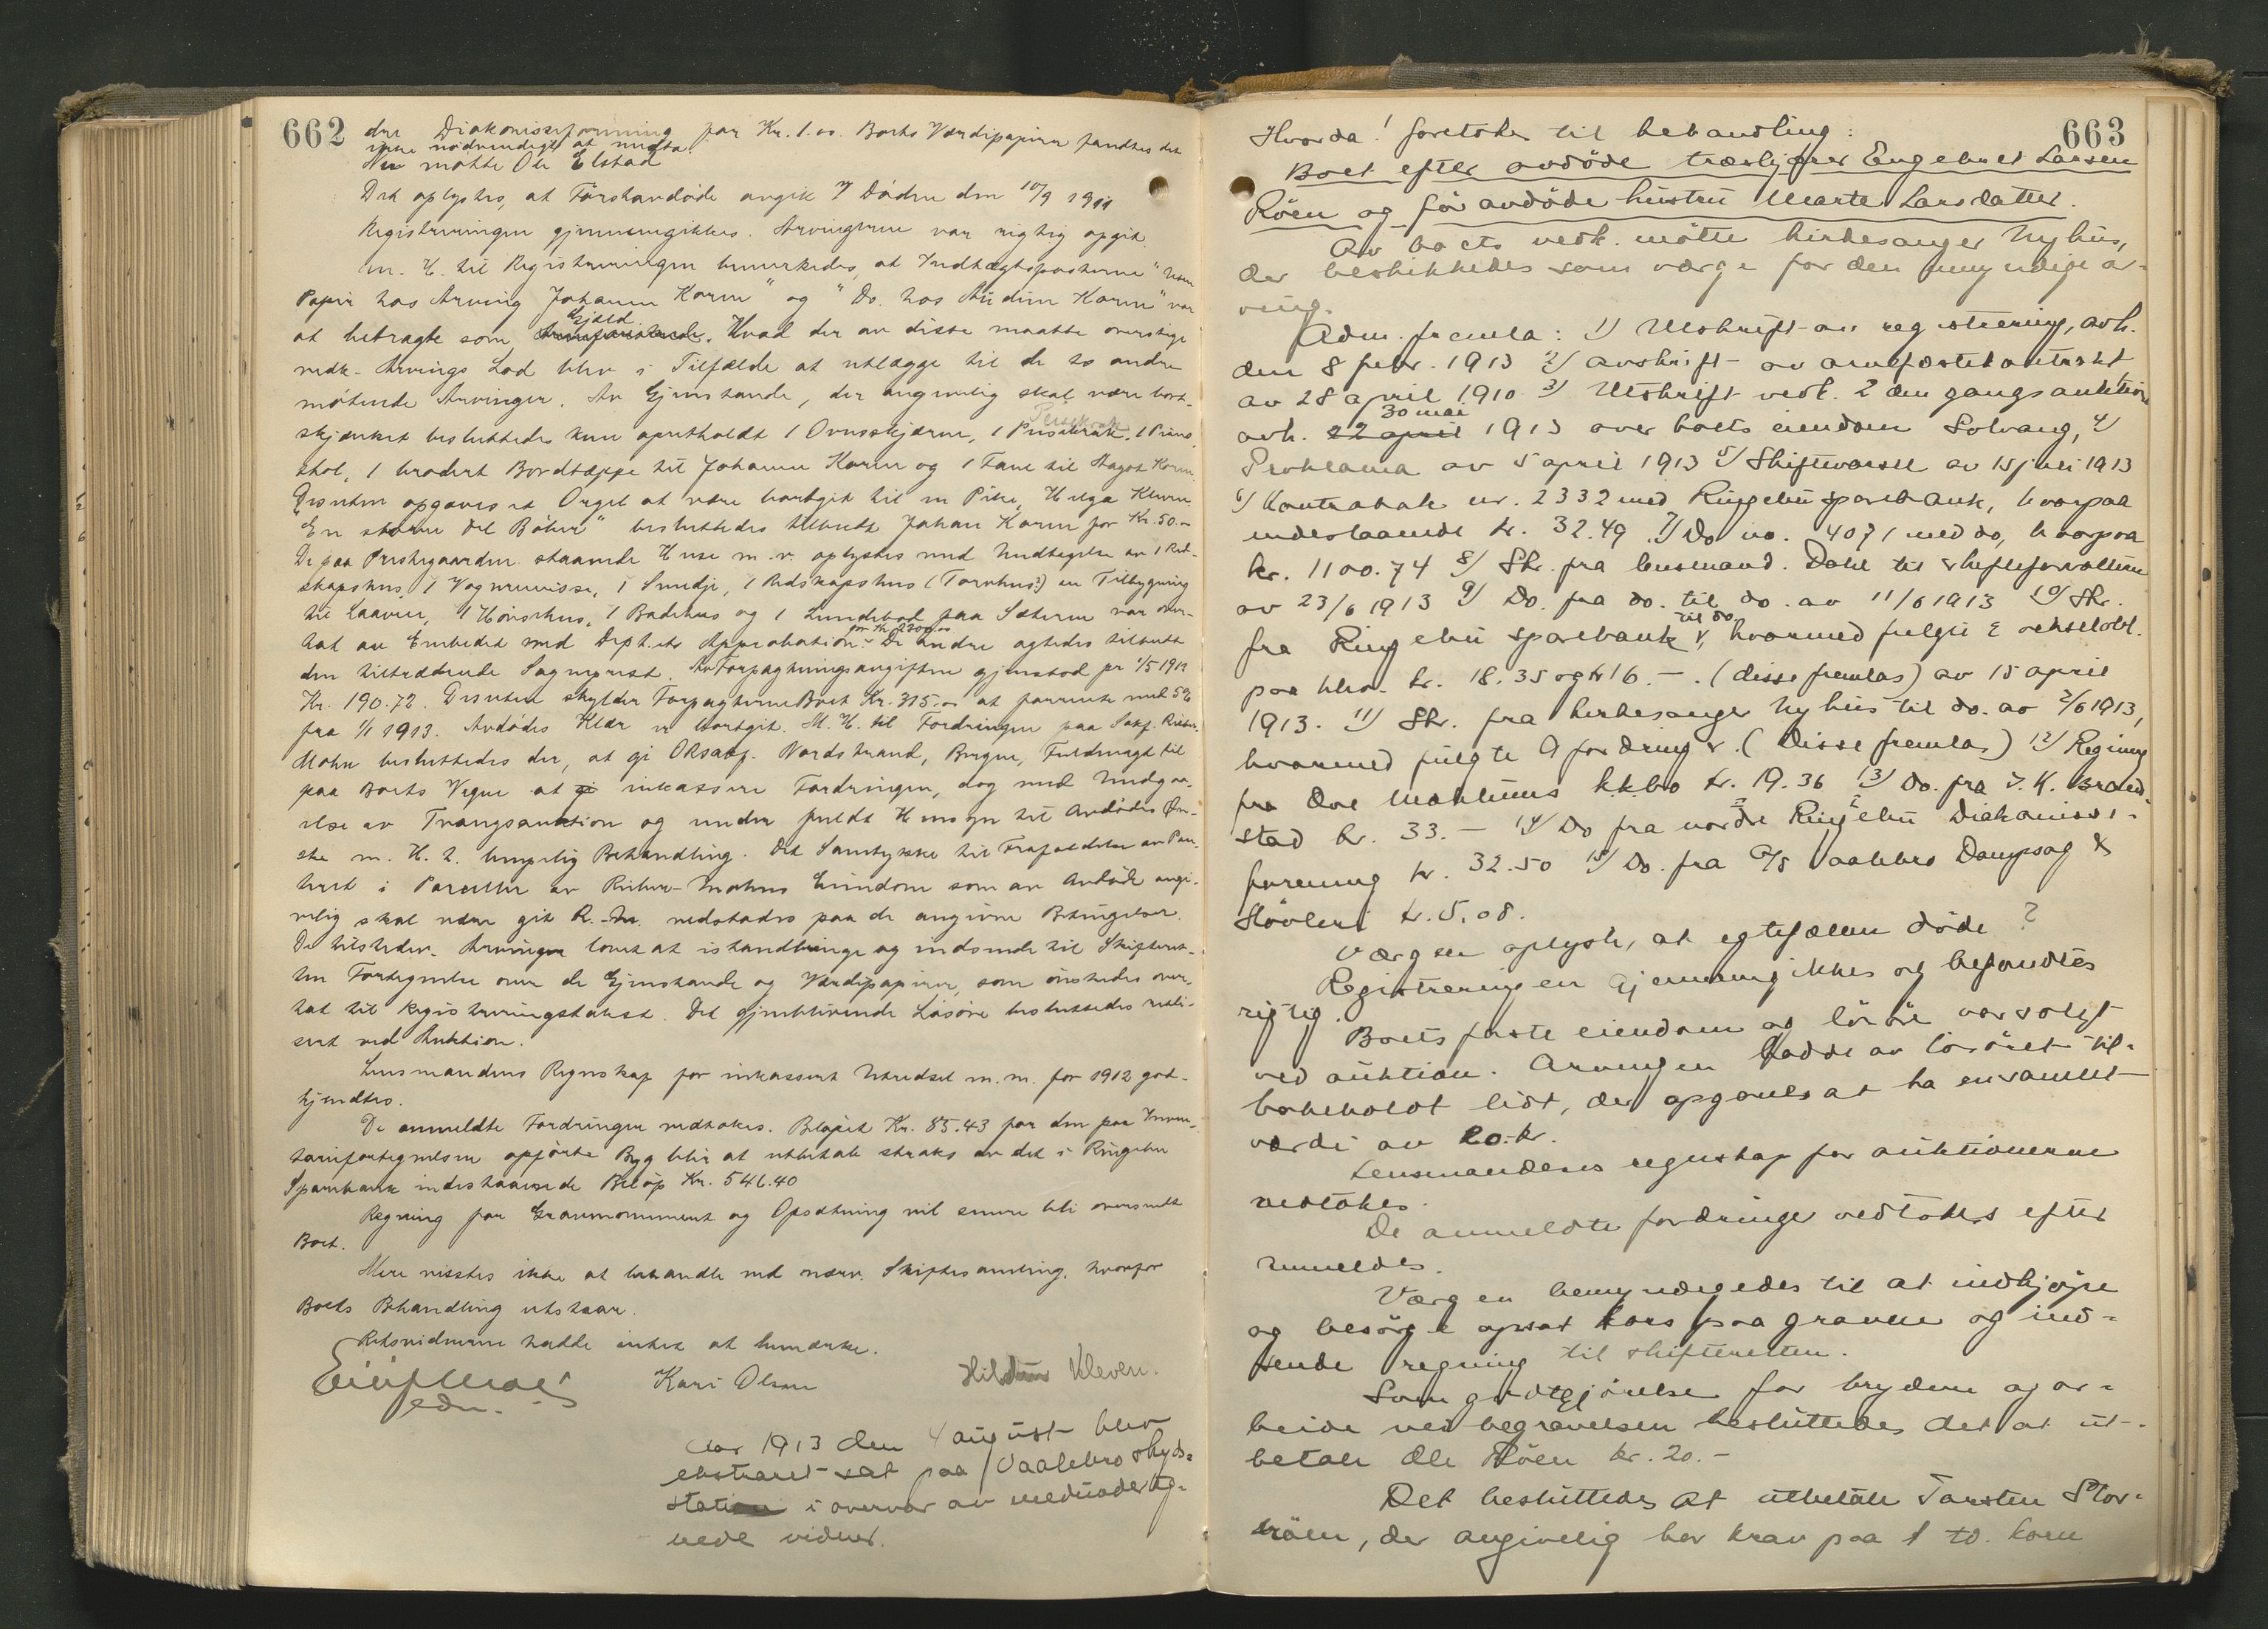 662
dre Diakonisseforening for Kr. 1.00. Boets Værdipapirer fandtes det
ikke nødvendigt at
Nu møtte Ole Elstad
Det oplystes, at Førstavdøde avgik v/ Døden den 10/9 1911
Registreringen gjennemgikkes. Arvingerne var rigtig opgit.
M. H. til Registreringen bemerkedes, at Indtægtsposterne "
Papir hos Arving Johanne Koren" og "Do. hos Audun Koren" var
at betragte som Gjæld. Hvad der av disse maatte overstige
vedk. Arvings Lod blev i Tilfælde at utlægge til de to andre
møtende Arvinger. Av Gjenstande, der angivelig skal være bort-
skjænket besluttedes kun opretholdt 1 Ovnsskjærm, 1 1 Piano
stol, 1 brodert Bordtæppe til Johanne Koren og 1 Fane til Aagot Koren
Desuten opgaves et Orgel at være bortgit til en Pike, Helga Kleven
"En større Del Bøker" besluttedes tilbudt Johan Koren for Kr. 50.-
De paa Prestegaarden staaende Huse m. v. oplystes med Undtagelse av 1 Red-
skapshus, 1 Vognremisse, 1 Smedje, 1 Redskapshus (Tørvhus?) en Tilbygning
til Laaven, 1 Hønsehus, 1 Badehus og 1 paa Sæteren var over-
tat av Embedet med Dept.ets Approbation for Kr. 2200.00. De andre agtedes tilbudt
den tiltrædende Sogneprest. Av Forpagtningsavgiften gjenstod pr 1/5 1912
Kr. 190.72. Desuten skylder Forpagterne Boet Kr. 315.- at forrente med 5%
fra 1/1 1913. Avdødes Klær er bortgit. M. H. til Fordringen paa Sakf. Rieber-
Mohn besluttedes der, at gi ORsakf. Nordstrand, Bergen, Fuldmagt til
paa Boets Vegne at inkassere Fordringen, dog med Undgaa-
else av Tvangsauktion og under fuldt Hensyn til Avdødes Øn-
ske m. H. t. lempelig Behandling. Det Samtykke til Frafaldelse av Pan-
teret i Parceller av Rieber-Mohns Eiendom som av Avdøde angi-
velig skal være git R.-M. vedstodes paa de angivne Betingelser.
De tilstedev. Arvinger lovet at istandbringe og indsende til Skifteret-
ten Fortegnelse over de Gjenstande og Værdipapirer, som ønskedes over-
tat til Registreringstakst. Det gjenblivende Løsøre besluttedes reali-
sert ved Auktion.
Lensmandens Regnskap for inkassert Utredsel m. m. for 1912 god-
kjendtes.
De anmeldte Fordringer vedtokes. Beløpet Kr. 85.43 for den paa Inven-
tariefortegnelsen opførte Byg blir at utbetale straks av det i Ringebu
Sparebank indestaaende Beløp Kr. 546.40
Regning for Gravmonument og Opsætning vil senere bli oversendt
Boet.
Mere vistes ikke at behandle ved nærv. Skiftesamling, hvorfor
Boets Behandling utstaar.
Retsvidnerne hadde intet at bemerke.
Kari Olsen Kleven.
Aar 1913 den 4 august blev
ekstraret sat paa Vaalebro skyds-
station i overvær av medunderteg-
nede vidner.
663
Hvorda! foretokes til behandling:
Boet efter avdøde træskjærer Engebret Larsen
Røen og før avdøde hustru Marte Larsdatter.
Av boets vedk. møtte kirkesanger Nyhus,
der beskikkedes som værge for den umyndige ar-
ving.
Adm. fremla: 1) Utskrift av registrering, avh.
den 8 febr. 1913 2) avskrift av arvefæstekontrakt
av 28 april 1910 3) Utskrift vedk. 2den gangs auktion
avh. 22 april 30 mai 1913 over boets eiendom Solvang, 4)
Proklama av 5 april 1913 5) Skiftevarsel av 15 juli 1913
6) Kontrabok nr. 2332 med Ringebu sparebank, hvorpaa
indestaaende kr. 32.49. 7) Do no. 4071 med do, hvorpaa
kr. 1100.74 8) Skr. fra lensmand. Dahl til skifteforvalteren
av 23/6 1913 9) Do. fra do. til do. av 11/6 1913 10) Skr.
fra Ringebu sparebank til do, hvormed fulgte 2 vekselobl.
paa hhv. kr. 18.35 og kr 16.-. (disse fremlas) av 15 april
1913. 11) Skr. fra kirkesanger Nyhus til do. av 2/6 1913,
hvormed fulgte 9 fordringer. (Disse fremlas) 12) Regning
fra Ole Moehlums kr. 19.36 13) Do. fra J. K. Brand-
stad kr. 33.- 14) Do fra nordre Ringebu Diakonisse-
forening kr. 32.50 15) Do. fra A/S Vaalebro Dampsag &
Høvleri kr. 5.08.
Værgen oplyste, at egtefællen døde ?
Registreringen gjennemgikkes og befandtes
rigtig.
Boets faste eiendom og løsøre var solgt
ved auktion. Arvingen hadde av løsøret til-
bakeholdt lidt, der opgaves at ha en samlet
værdi av 20.-kr.
Lensmandens regnskap for auktionerne
vedtokes.
De anmeldte fordringer vedtokes efter
anmeldes.
Værgen bemyndigedes til at indkjøpe
og besørge opsat kors paa graven og ind-
sende regning til skifteretten.
Som godtgjørelse for bryderi og ar-
beide ved begravelsen besluttedes det at ut-
betale Ole Røen kr. 20.-
Det besluttedes at utbetale Torsten Stor-
røen, der angivelig har krav paa 1 td. korn